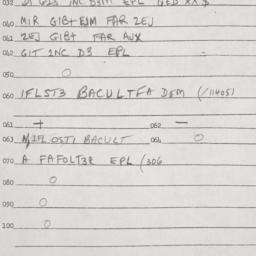 040 MIR GIB+EJM FAR 2EJ
060 2EJ GIB+ FAR AUX
040 GIT INC D3 EPL
050 O
060 IFLST3 BACULTFA DEM (/11405)
061 + 062 -
063 OSTI BACULT 064 O
070 A FAFOLT32 EPL (306
080 O
090 O
100 O